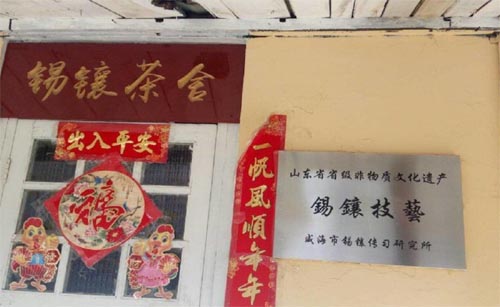 锡镶茶舍
出入平安
福
一帆風順年年
山东省省级非物质文化遗产
錫鑲技藝
威海市锡镶传习研究所